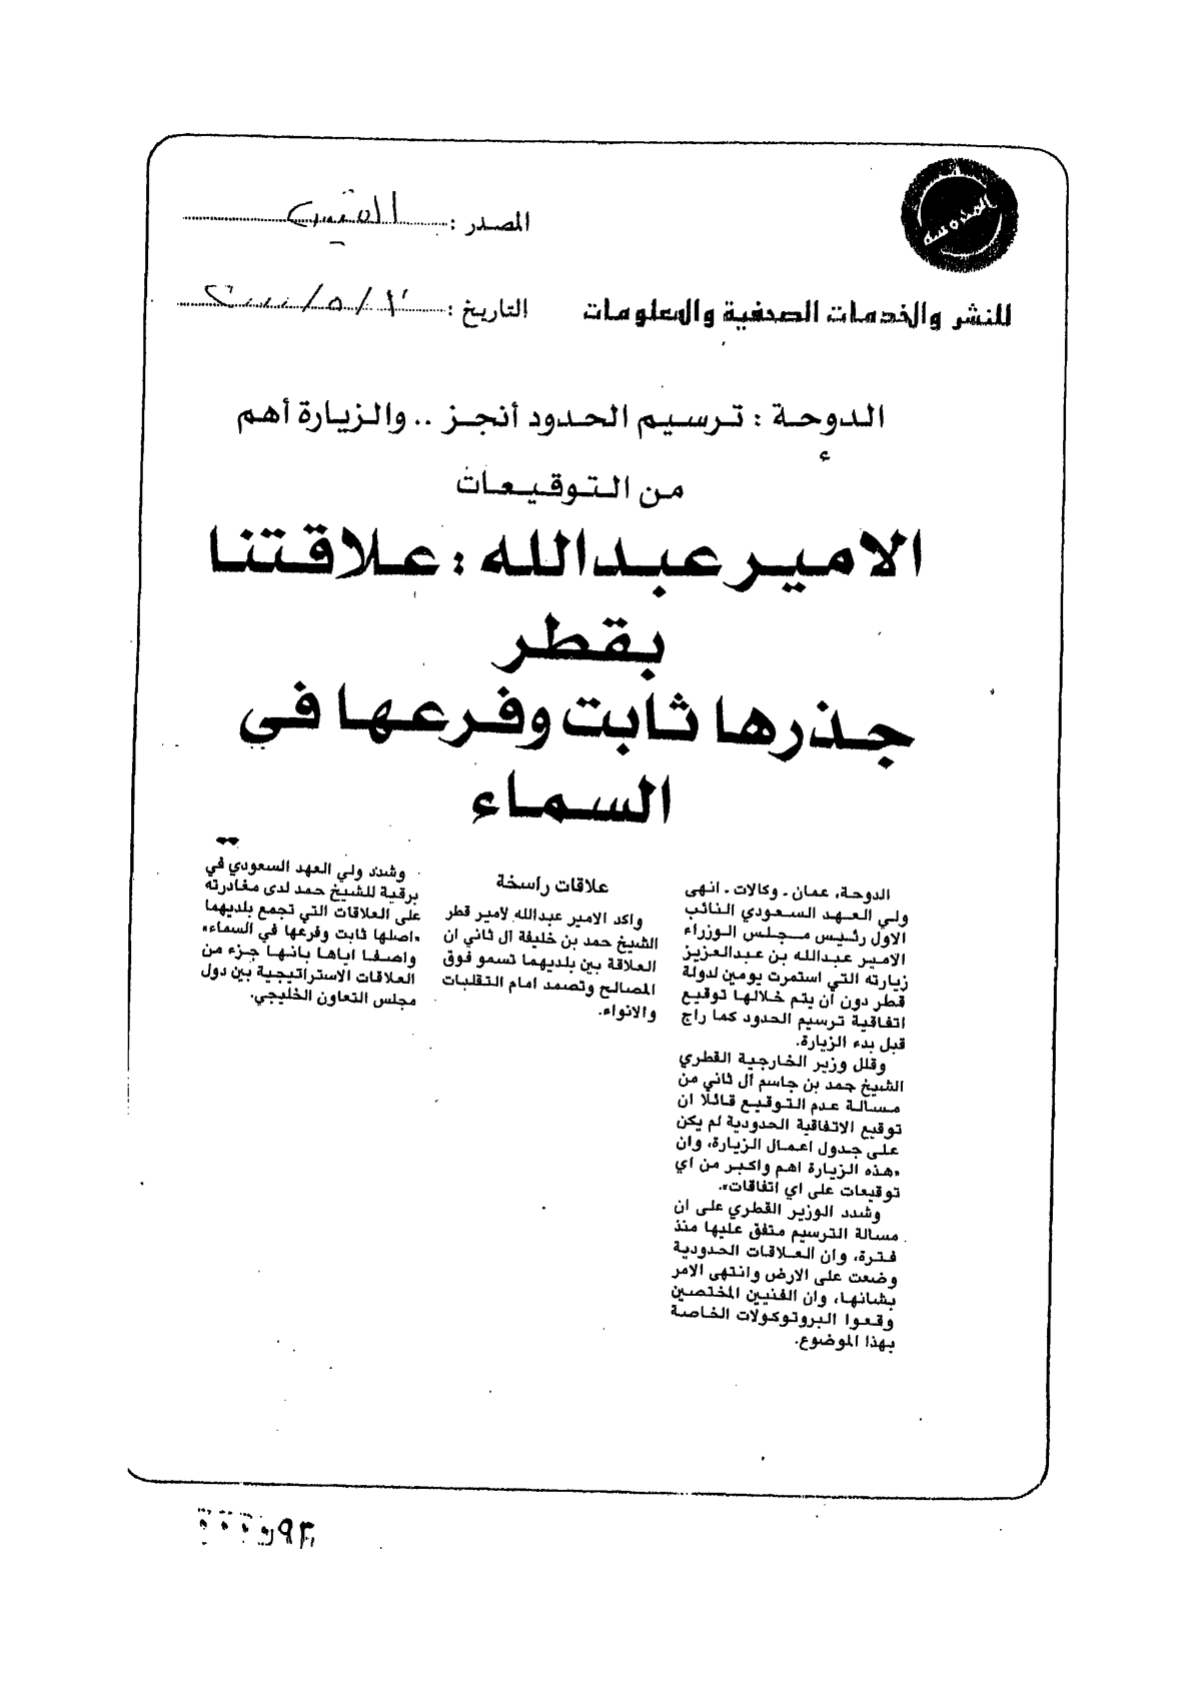 المصدر :
للنشر والخدمات الصحفية والمعلومات
التاريخ :
الدوحة : ترسيم الحدود أنجز .. والزيارة أهم
من التوقيعات
الامير عبدالله : علاقتنا
بقطر
جذرها ثابت وفرعها في
السماء
الدوحة، عمان ـ وكالات ـ انهى
ولي العهد السعودي النائب
الاول رئيس مجلس الوزراء
الامير عبدالله بن عبدالعزيز
زيارته التي استمرت يومين لدولة
قطر دون أن يتم خلالها توقيع
اتفاقية ترسيم الحدود كما راج
قبل بدء الزيارة.
وقلل وزير الخارجية القطري
الشيخ حمد بن جاسم آل ثاني من
مسالة عدم التوقيع قائلا ان
توقيع الاتفاقية الحدودية لم يكن
على جدول اعمال الزيارة، وان
«هذه الزيارة اهم واكبر من اي
توقيعات على اي اتفاقات».
وشدد الوزير القطري على ان
مسالة الترسيم متفق عليها منذ
فترة، وان العلاقات الحدودية
وضعت على الارض وانتهى الامر
بشانها، وان الفنيين المختصين
وقعوا البروتوكولات الخاصة
بهذا الموضوع.
علاقات راسخة
واكد الامير عبدالله لامير قطر
الشيخ حمد بن خليفة آل ثاني ان
العلاقة بين بلديهما تسمو فوق
المصالح وتصمد امام التقلبات
والانواء.
وشدد ولي العهد السعودي في
برقية للشيخ حمد لدى مغادرته
على العلاقات التي تجمع بلديهما
«اصلها ثابت وفرعها في السماء»
واصفا اياها بانها جزء من
العلاقات الاستراتيجية بين دول
مجلس التعاون الخليجي.